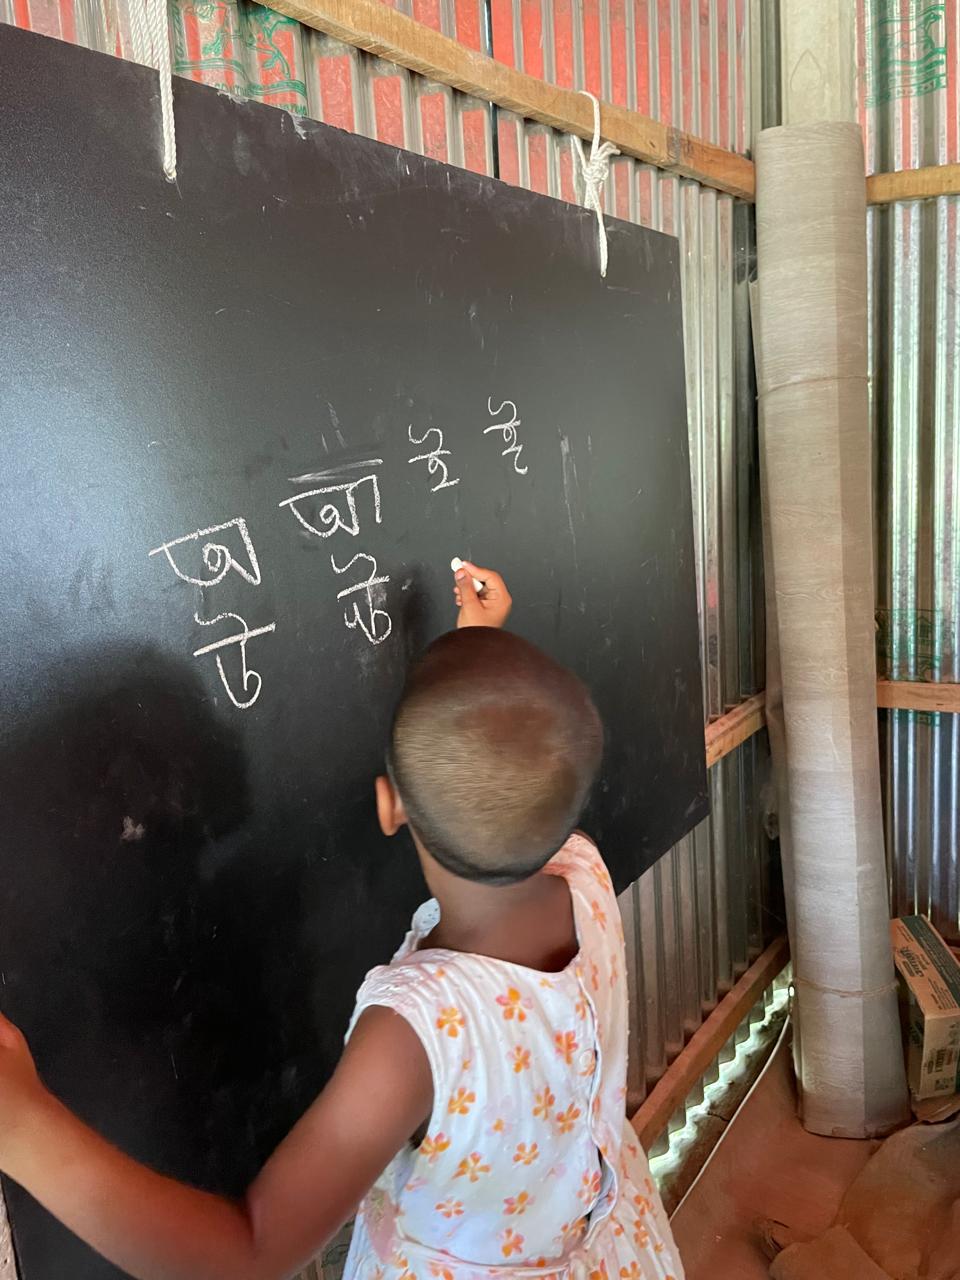 অ আ ই ঈ
উ ঊ